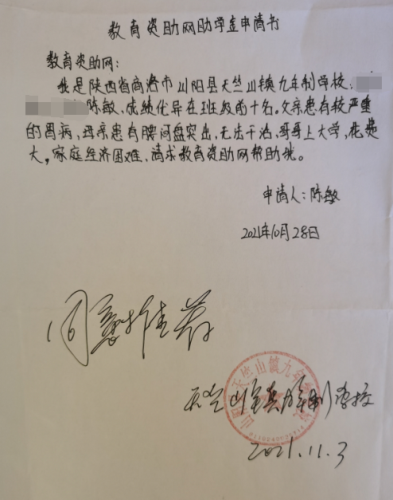 教育资助网助学金申请书
教育资助网：
我是陕西省商洛市山阳县天竺山镇九年制学校，
陈敏，成绩优异在班级前十名。父亲患有较严重
的胃病，母亲患有腰间盘突出，无法干活，哥哥上大学，花费
大。家庭经济困难，请求教育资助网帮助我。
申请人：陈敏
2021年10月28日
同意推荐
天竺山镇九年制学校
2021.11.3